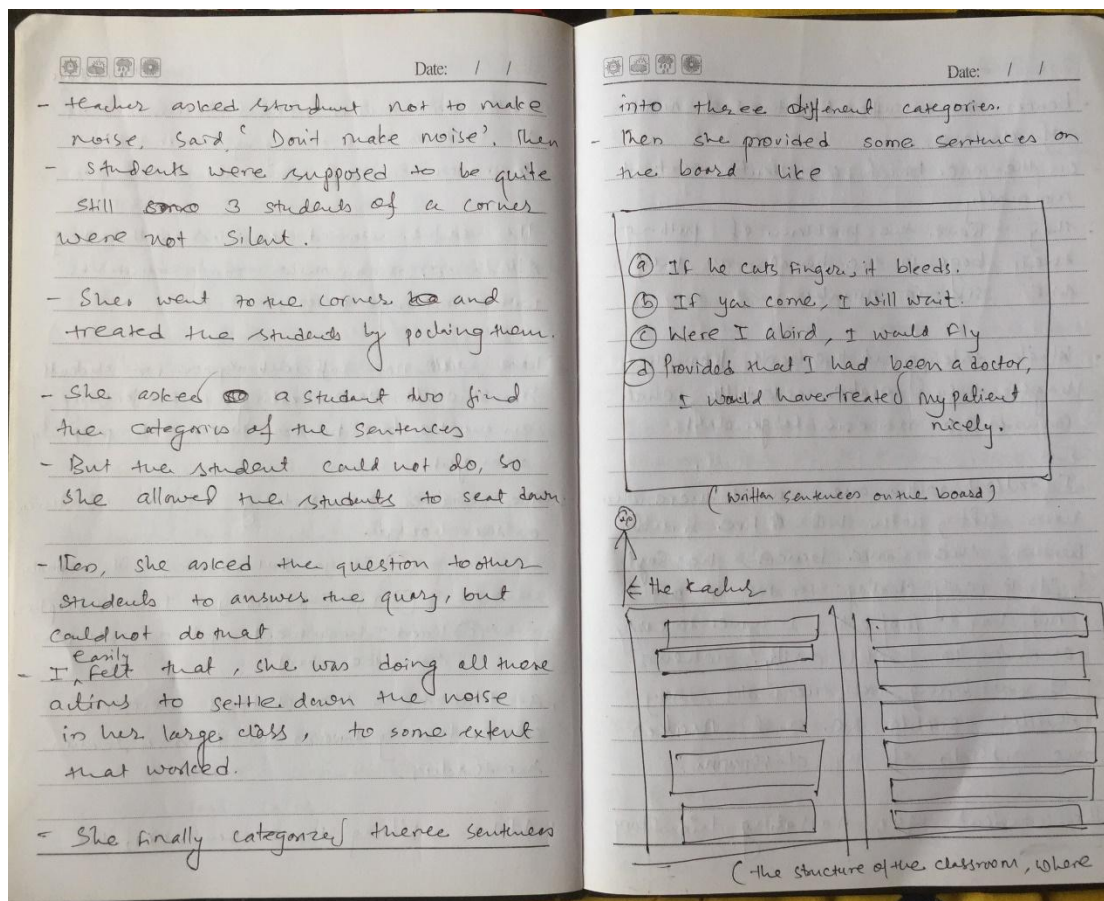 Date: / /
- teacher asked student not to make
noise, Said, ' Don't make noise'. Then
- students were supposed to be quite
still 3 students of a corner
were not silent.
- She went to the corner and
treated the students by pocking them.
- She asked a student two find
the categories of the sentences
- But the student could not do, so
she allowed the students to seat down.
she asked the question to other
students to answer the quary, but
could not do that
- I easily felt that, she was doing all these
actions to settle down the noise
in her large class, to some extent
that worked.
- She finally categorized theree sentences
Date: / /
into theree different categories.
- Then she provided some sentences on
the board like
(a) If he cuts finger, it bleeds.
(b) If you come, I will wait.
(c) Were I a bird, I would fly
(d) Provided that I had been a doctor,
I would have treated my patient
nicely.
(written sentences on the board)
← the teacher
(the structure of the classroom, where